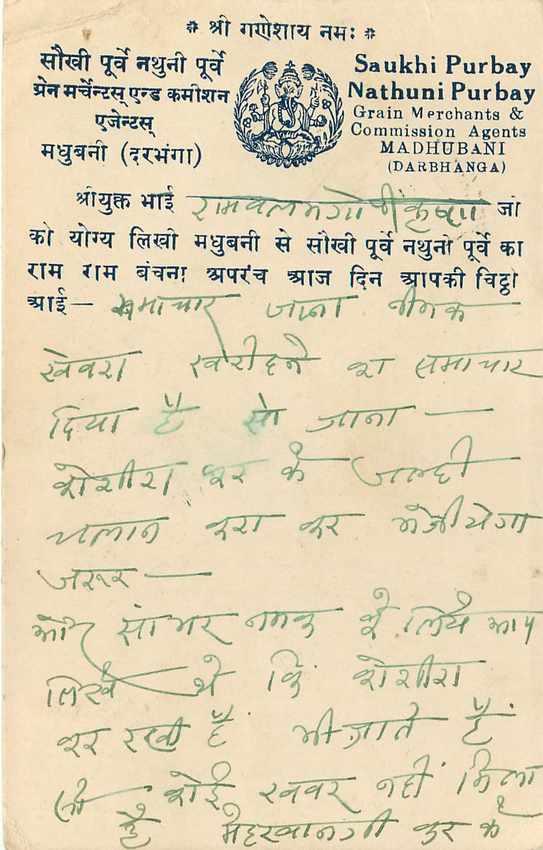 ❉ श्री गणेशाय नमः ❉
सौखी पूर्वे नथुनी पूर्वे
ग्रेन मर्चेन्टस् एन्ड कमीशन
एजेन्टस्
मधुबनी (दरभंगा)
Saukhi Purbay
Nathuni Purbay
Grain Merchants &
Commission Agents
MADHUBANI
(DARBHANGA)
श्रीयुक्त भाई जी
को योग्य लिखी मधुबनी से सौखी पूर्वे नथुनी पूर्वे का
राम राम बंचना अपरंच आज दिन आपकी चिट्ठी
आई— समाचार जाना नीमक
खेवरा खरीदने का समाचार
दिया है सो जाना —
कोशीश कर के जल्दी
चलान करा कर भेजीयेगा
जरूर —
और सांभर नमक के लिये आप
लिखे थे कि कोशीश
कर रखी है भी जाते हैं
सो कोई खबर नहीं मिला
है मेहरबानगी कर के